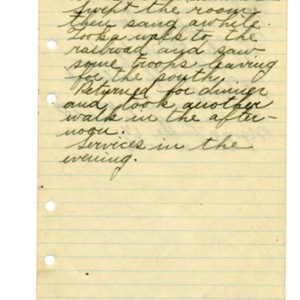 swept the room
then sang awhile.
Took a walk to the
railroad and saw
some troops leaving
for the south.
Returned for dinner
and took another
walk in the after-
noon.
Services in the
evening.